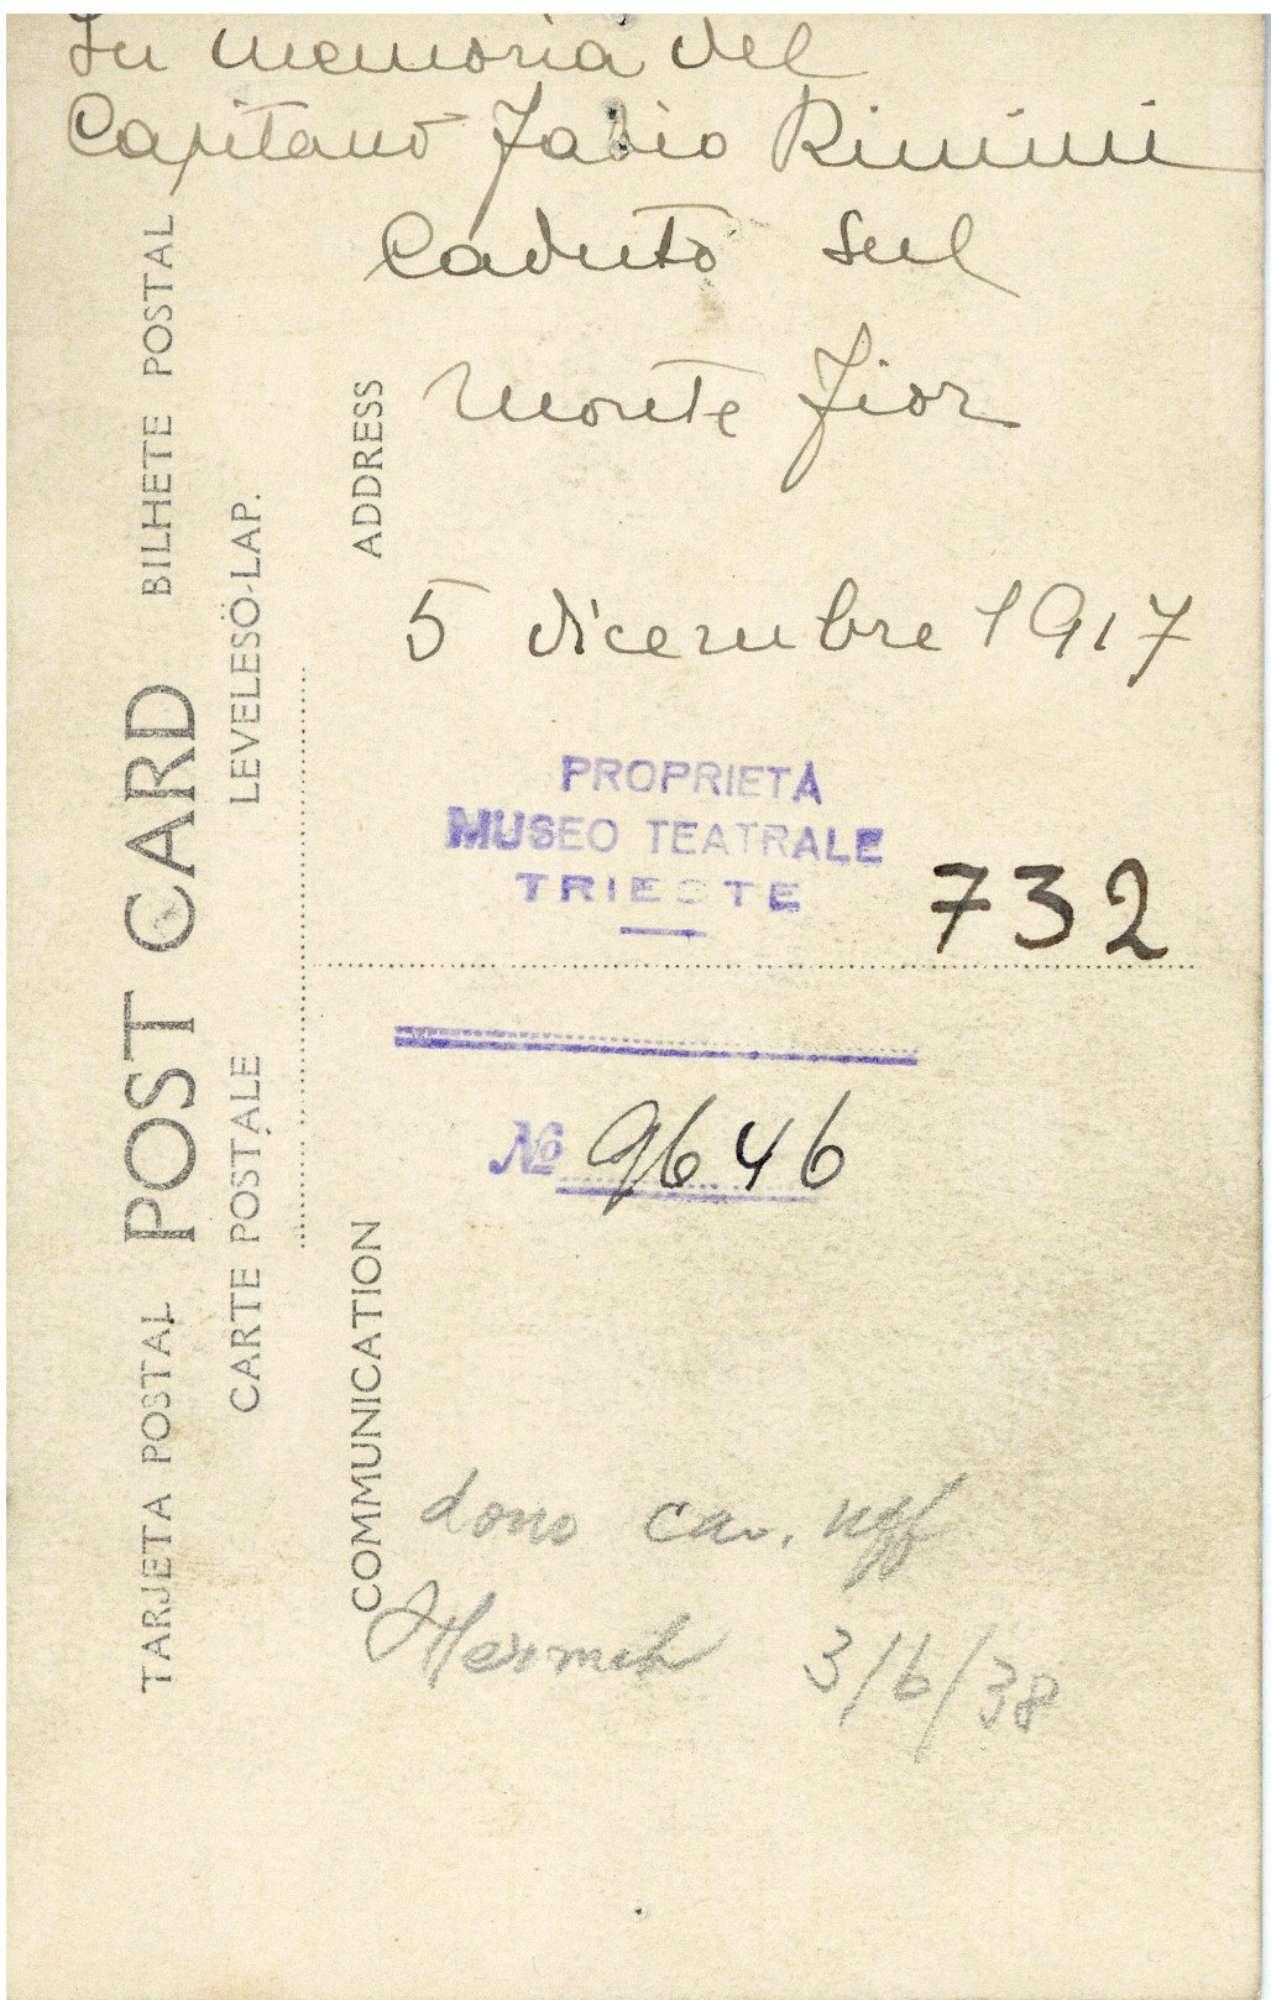 In memoria del
Capitano Fabio Rimini
Caduto sul
Monte Fior
5 dicembre 1917
TARJETA POSTAL POST CARD BILHETE POSTAL
CARTE POSTALE LEVELESÖ-LAP.
ADDRESS
PROPRIETÀ
MUSEO TEATRALE
TRIESTE
732
No 9646
COMMUNICATION
dono cav. uff
3/6/38